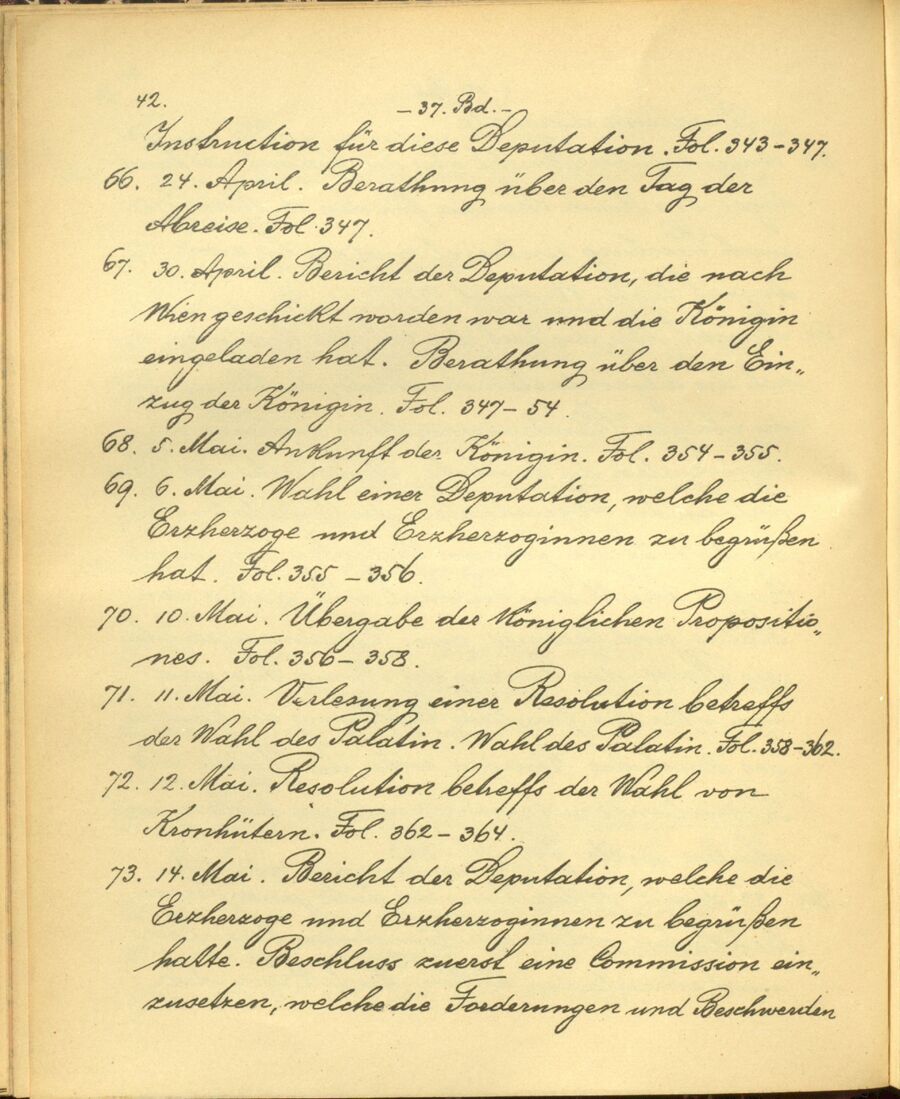 42.
- 37. Bd. -
Instruction für diese Deputation. Fol. 343-347.
66. 24. April. Berathung über den Tag der
Abreise. Fol. 347.
67. 30. April. Bericht der Deputation, die nach
Wien geschickt worden war und die Königin
eingeladen hat. Berathung über den Ein„
zug der Königin. Fol. 347-54.
68. 5. Mai. Ankunft der Königin. Fol. 354-355.
69. 6. Mai. Wahl einer Deputation, welche die
Erzherzoge und Erzherzoginnen zu begrüßen
hat. Fol. 355-356.
70. 10. Mai. Übergabe der Königlichen Propositio„
nes. Fol. 356-358.
71. 11. Mai. Verlesung einer Resolution betreffs
der Wahl des Palatin. Wahl des Palatin. Fol. 358-362.
72. 12. Mai. Resolution betreffs der Wahl von
Kronhütern. Fol. 362-364.
73. 14. Mai. Bericht der Deputation, welche die
Erzherzoge und Erzherzoginnen zu begrüßen
hatte. Beschluss zuerst eine Commission ein„
zusetzen, welche die Forderungen und Beschwerden